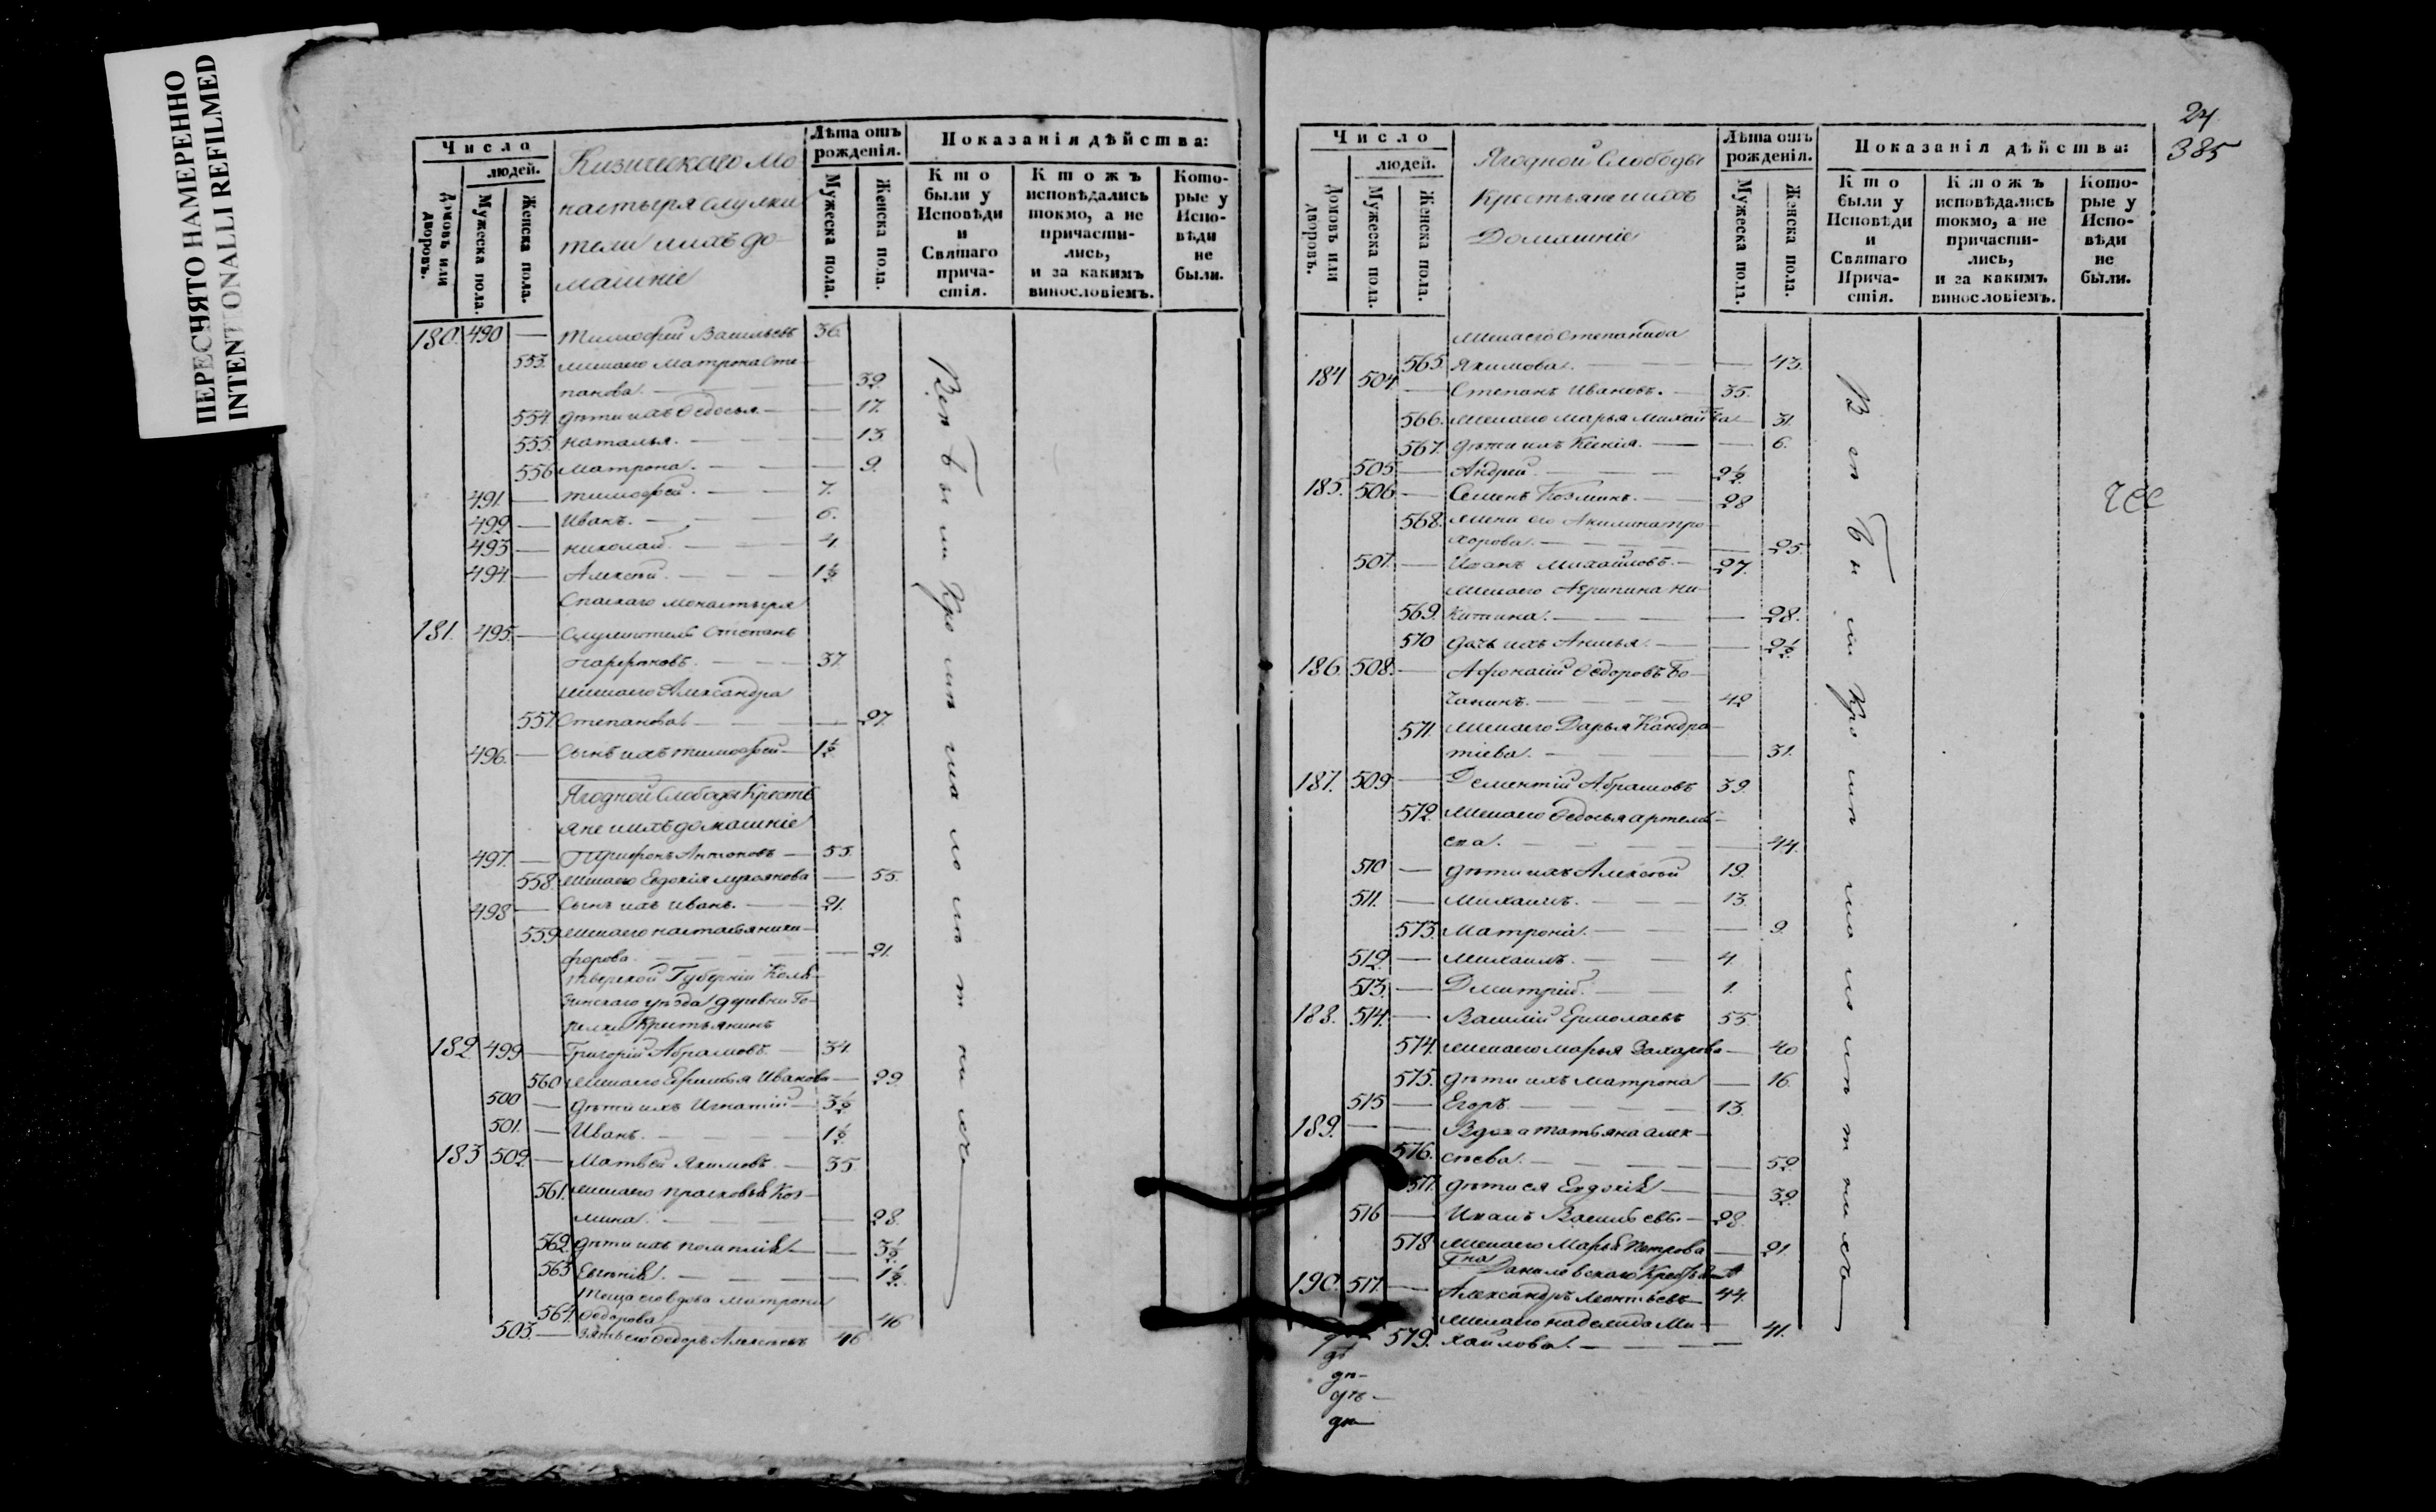 ПЕРЕСНЯТО НАМЕРЕННО
INTENTIONALLI REFILMED
Число
людей.
Домовъ или дворовъ.
Мужеска пола.
Женска пола.
Кизическаго Мо
настыря служи
тели иихъ до-
машніе
Лѣта отъ рожденія.
Мужеска пола.
Женска пола.
Показанія дѣйства:
Кто были у Исповѣди и Святаго причастія.
Ктожъ исповѣдались токмо, а не причастились, и за какимъ винословіемъ.
Которые у Исповѣди не были.
180. 490 — Тимофей Васильевъ 36.
553. жена его Матрона Сте-
панова. — — 32.
554. дѣти ихъ Ѳедосья — — 17.
555. Наталья. — — 13
556 Матрона. — — 9.
491. — Тимофей. — — 7.
492 — Иванъ. — — 6.
493 — Николай. — — 4.
494. — Алексей. — — 1½
Спаскаго монастыря
181. 495. — Служитель Степанъ
Парфеновъ. — — 37.
жена его Александра
557. Степанова — — 27.
496. — Сынъ ихъ Тимофей — 1½
Ягодной Слободы Кресть
яне иихъ домашніе
497. — Антоновъ — 55.
558. жена его Евдокія Лукоянова — 55.
498 — Сынъ ихъ Иванъ. — 21.
559 жена его Настасья Ники-
форова. — — 21.
Тверской Губерніи Коля-
зинскаго уѣзда деревни Го-
Крестьянинъ
182 499 — Григорій Абрамовъ. — 34.
560 жена его Ефимья Иванова — 29.
500 — дѣти ихъ Игнатій — 3½
501. — Иванъ. — — 1½
183 502. — Матвей Якимовъ. — 35
561. жена его Прасковья Коз-
мина. — — 28.
562. дѣти ихъ — — 3½
563 Евгенія. — — 1½
теща его вдова Матрона
564. Ѳедорова — 46
503. — зять его Ѳедоръ Алексѣевъ 46
Всѣ были кромѣ малолѣтнихъ
24
385
Число
людей.
Домовъ или дворовъ.
Мужеска пола.
Женска пола.
Ягодной Слободы
Крестьяне иихъ
Домашніе
Лѣта отъ рожденія.
Мужеска пола.
Женска пола.
Показанія дѣйства:
Кто были у Исповѣди и Святаго Причастія.
Ктожъ исповѣдались токмо, а не причастились, и за какимъ винословіемъ.
Которые у Исповѣди не были.
жена его Степанида
565. Якимова. — — 43.
184 504 — Степанъ Ивановъ. — 35.
566. жена его Марья Михайлова — 31.
567. дѣти ихъ Ксенія. — — 6.
505 — Андрей. — — 2½
185. 506 — Семенъ Козминъ. — 28
568. жена его Акилина Про-
хорова. — — 25.
507. — Иванъ Михайловъ. — 27.
жена его Агрипина Ни-
569. китина. — — 28.
570 дочь ихъ Анисья. — — 2½
186. 508. — Афонасій Ѳедоровъ Бо-
чанинъ. — — 42
571. жена его Дарья Кандра-
тіева. — — 31.
187. 509 — Дементій Абрамовъ 39.
572. жена его Ѳедосья Артемь-
ева. — — 44.
510 — дѣти ихъ Алексѣй 19.
511. — Михаилъ. — — 13.
573. Матрона. — — 9.
512. — Михаилъ. — — 4.
513. — Дмитрій. — — 1.
188. 514. — Василій Ермолаевъ 55.
574. жена его Марья Захарова — 40
575. дѣти ихъ Матрона — 16.
515 — Егоръ. — — 13.
189. — — Вдова Татьяна Алек-
576. сѣева. — — 52.
577. дѣти ея Евдокія — — 32.
516 — Иванъ Васильевъ. — 28.
578 жена его Марья Петрова — 21.
Гна Даниловскаго
190. 517. — Александръ Леонтьевъ — 44.
жена его Надежда Ми-
579. хайлова. — — 41.
Всѣ были кромѣ малолѣтнихъ